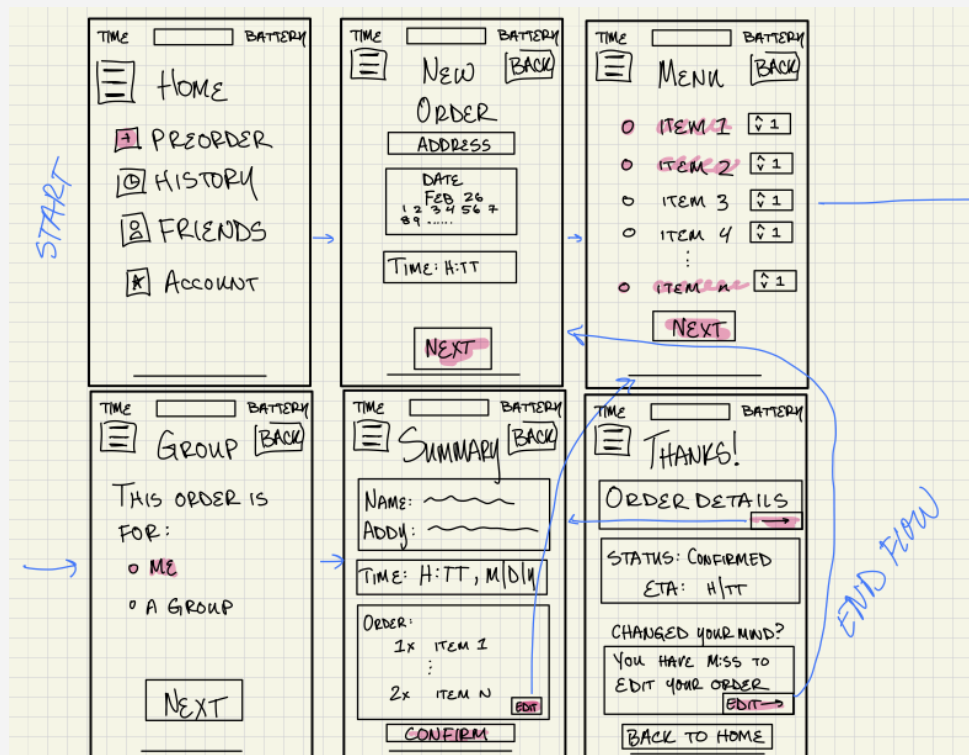 START
TIME BATTERY
HOME
PREORDER
HISTORY
FRIENDS
ACCOUNT
TIME BATTERY
NEW BACK
ORDER
ADDRESS
DATE
FEB 26
1 2 3 4 5 6 7
8 9 ......
TIME: H:TT
NEXT
TIME BATTERY
MENU BACK
ITEM 1 1
ITEM 2 1
ITEM 3 1
ITEM 4 1
⋮
ITEM n 1
NEXT
TIME BATTERY
GROUP BACK
THIS ORDER IS
FOR:
ME
A GROUP
NEXT
TIME BATTERY
SUMMARY BACK
NAME:
ADDY:
TIME: H:TT, M|D|Y
ORDER:
1x ITEM 1
⋮
2x ITEM N
EDIT
CONFIRM
TIME BATTERY
THANKS!
ORDER DETAILS
→
STATUS: CONFIRMED
ETA: H|TT
CHANGED YOUR MIND?
YOU HAVE M:SS TO
EDIT YOUR ORDER
EDIT→
BACK TO HOME
END FLOW